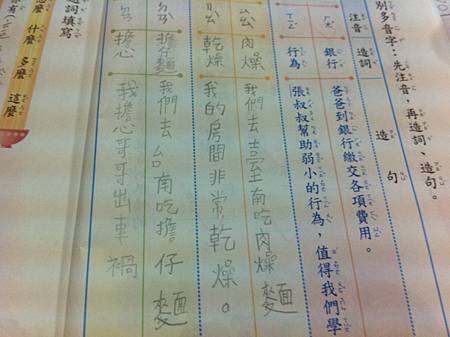 別多音字：先注音，再造詞、造句。
注音 造詞 造句
銀行 爸爸到銀行繳交各項費用。
行為 張叔叔幫助弱小的行為，值得我們學
肉燥 我們去臺南吃肉燥麵
乾燥 我的房間非常乾燥。
擔仔麵 我們去台南吃擔仔麵
擔心 我擔心哥哥出車禍
詞填寫
什麼 多麼 這麼